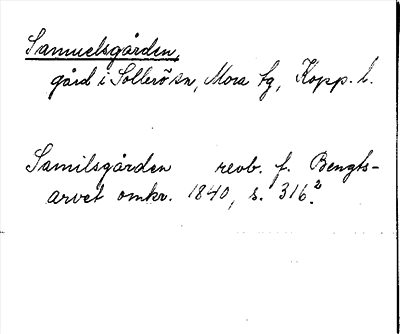 Samuelsgården,
gård i Sollerö sn, Mora tg, Kopp. l.
Samilsgården revb. f. Bengts-
arvet omkr. 1840, s. 316².